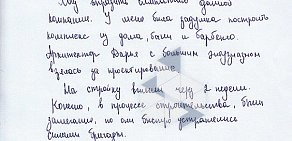 Хочу выразить благодарность данной
компании. У меня была задумка построить
комплекс из дома, бани и барбекю.
Архитектор Дарья с большим энтузиазмом
взялась за проектирование.
На стройку вышли через 2 недели.
Конечно, в процессе строительства, были
замечания, но они быстро устранялись
силами бригады.